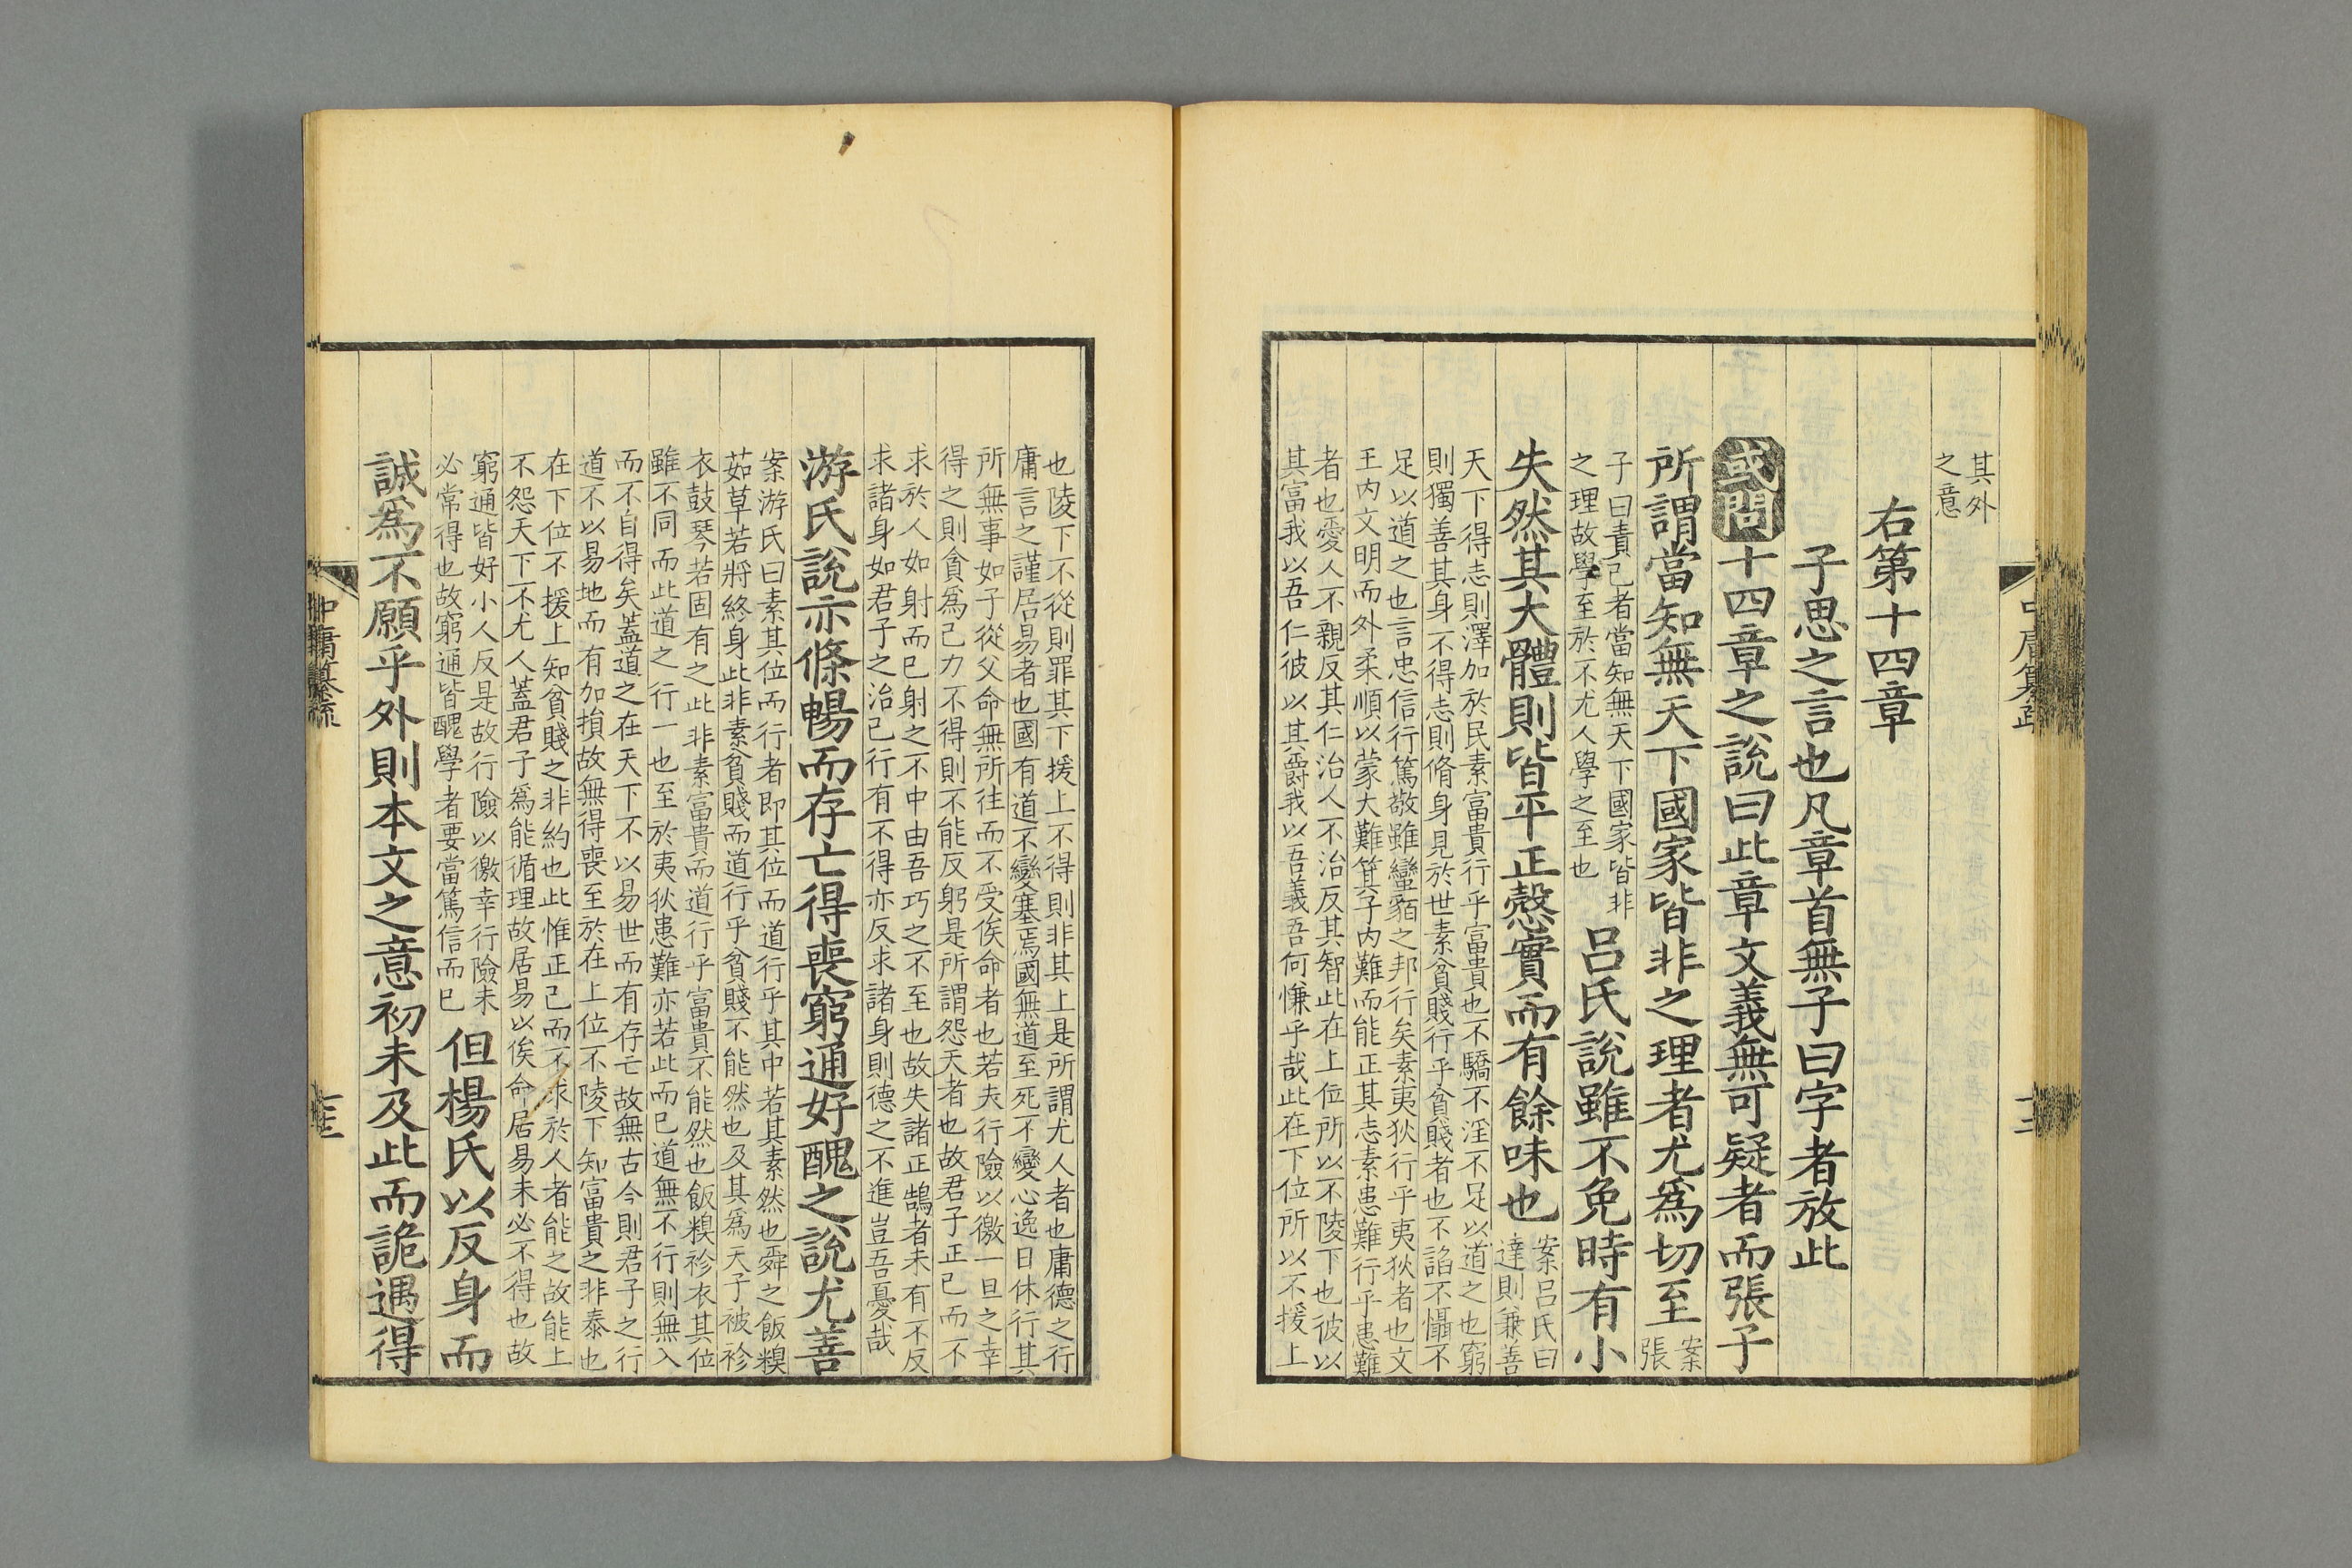 其外
之意
右第十四章
子思之言也凡章首無子曰字者放此
或問十四章之說曰此章文義無可疑者而張子
所謂當知無天下國家皆非之理者尤爲切至
案
張
子曰責己者當知無天下國家皆非
之理故學至於不尤人學之至也
呂氏說雖不免時有小
失然其大體則皆平正慤實而有餘味也
案呂氏曰
達則兼善
天下得志則澤加於民素富貴行乎富貴也不驕不淫不足以道之也窮
則獨善其身不得志則脩身見於世素貧賤行乎貧賤者也不諂不懾不
足以道之也言忠信行篤敬雖蠻貊之邦行矣素夷狄行乎夷狄者也文
王内文明而外柔順以蒙大難箕子内難而能正其志素患難行乎患難
者也愛人不親反其仁治人不治反其智此在上位所以不陵下也彼以
其富我以吾仁彼以其爵我以吾義吾何慊乎哉此在下位所以不援上
也陵下不從則罪其下援上不得則非其上是所謂尤人者也庸德之行
庸言之謹居易者也國有道不變塞焉國無道至死不變心逸日休行其
所無事如子從父命無所往而不受俟命者也若夫行險以徼一旦之幸
得之則貪爲己力不得則不能反躬是所謂怨天者也故君子正己而不
求於人如射而已射之不中由吾巧之不至也故失諸正鵠者未有不反
求諸身如君子之治己行有不得亦反求諸身則德之不進豈吾憂哉
游氏說亦條暢而存亡得喪窮通好醜之說尤善
案游氏曰素其位而行者即其位而道行乎其中若其素然也舜之飯糗
茹草若將終身此非素貧賤而道行乎貧賤不能然也及其爲天子被袗
衣鼓琴若固有之此非素富貴而道行乎富貴不能然也飯糗袗衣其位
雖不同而此道之行一也至於夷狄患難亦若此而已道無不行則無入
而不自得矣蓋道之在天下不以易世而有存亡故無古今則君子之行
道不以易地而有加損故無得喪至於在上位不陵下知富貴之非泰也
在下位不援上知貧賤之非約也此惟正己而不求於人者能之故能上
不怨天下不尤人蓋君子爲能循理故居易以俟命居易未必不得也故
窮通皆好小人反是故行險以徼幸行險未
必常得也故窮通皆醜學者要當篤信而已
但楊氏以反身而
誠爲不願乎外則本文之意初未及此而詭遇得
中庸纂疏